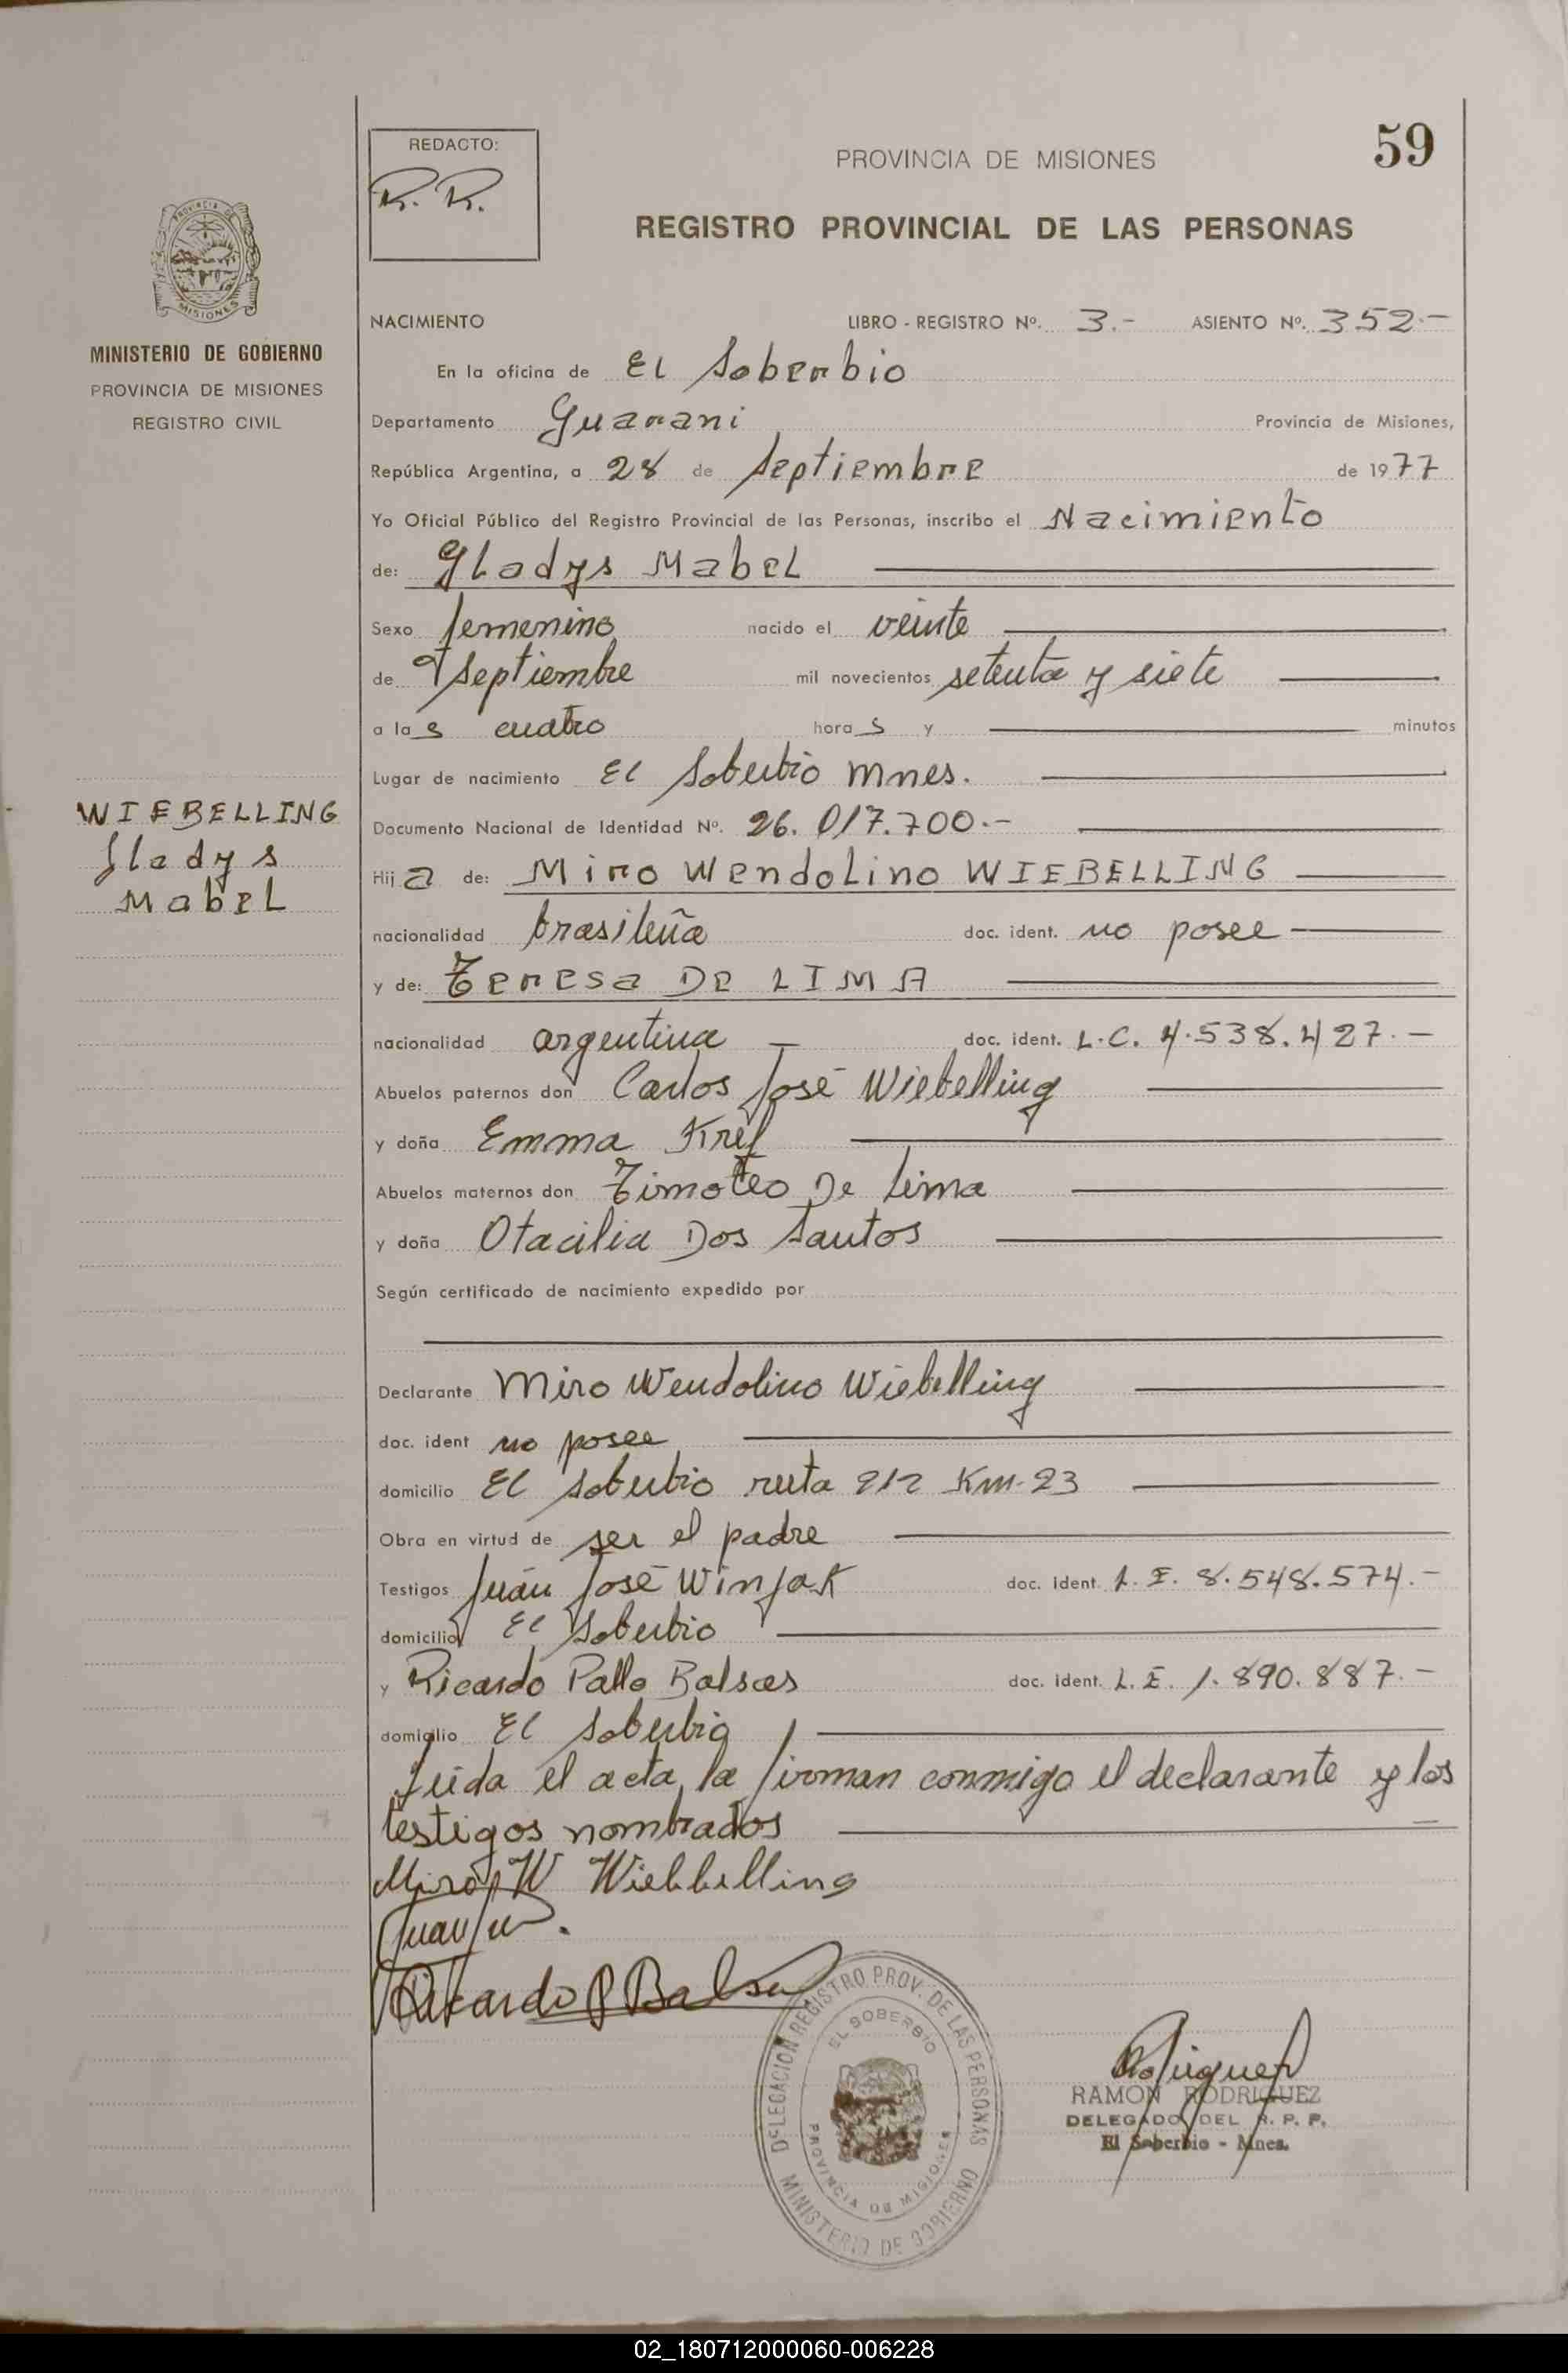 REDACTO:
R. R.
PROVINCIA DE MISIONES
59
REGISTRO PROVINCIAL DE LAS PERSONAS
PROVINCIA DE
MISIONES
MINISTERIO DE GOBIERNO
PROVINCIA DE MISIONES
REGISTRO CIVIL
NACIMIENTO LIBRO - REGISTRO Nº. 3.- ASIENTO Nº. 352.-
En la oficina de El Soberbio
Departamento Guarani Provincia de Misiones,
República Argentina, a 28 de Septiembre de 1977
Yo Oficial Público del Registro Provincial de las Personas, inscribo el Nacimiento
de: Gladys Mabel
Sexo femenino nacido el veinte
de Septiembre mil novecientos setenta y siete
a las cuatro horas y minutos
Lugar de nacimiento El Soberbio Mnes.
WIEBELLING
Gladys
Mabel
Documento Nacional de Identidad Nº. 26.017.700.-
Hija de: Miro Wendolino WIEBELLING
nacionalidad brasileña doc. ident. no posee
y de: Teresa DE LIMA
nacionalidad argentina — doc. ident. L.C. 4.538.427.-
Abuelos paternos don Carlos José Wiebelling
y doña Emma Kref
Abuelos maternos don Timoteo De Lima
y doña Otacilia Dos Santos
Según certificado de nacimiento expedido por
Declarante Miro Wendolino Wiebelling
doc. ident no posee
domicilio El Soberbio ruta 212 Km-23
Obra en virtud de ser el padre
Testigos Juan José Winfak doc. ident. L.E. 8.548.574.-
domicilio El Soberbio
y Ricardo Pallo Balsas doc. ident. L.E. 1.890.887.-
domicilio El Soberbio
Leida el acta, la firman conmigo el declarante y los
testigos nombrados
Miro W Wiebbelling
Ricardo P Balsa
DELEGACION REGISTRO PROV. DE LAS PERSONAS
EL SOBERBIO
PROVINCIA DE MISIONES
MINISTERIO DE GOBIERNO
RAMON RODRIGUEZ
DELEGADO DEL R. P. P.
El Soberbio - Mnes.
02_180712000060-006228